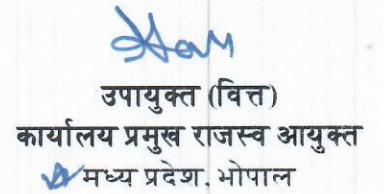 उपायुक्त (वित्त)
कार्यालय प्रमुख राजस्व आयुक्त
मध्य प्रदेश, भोपाल